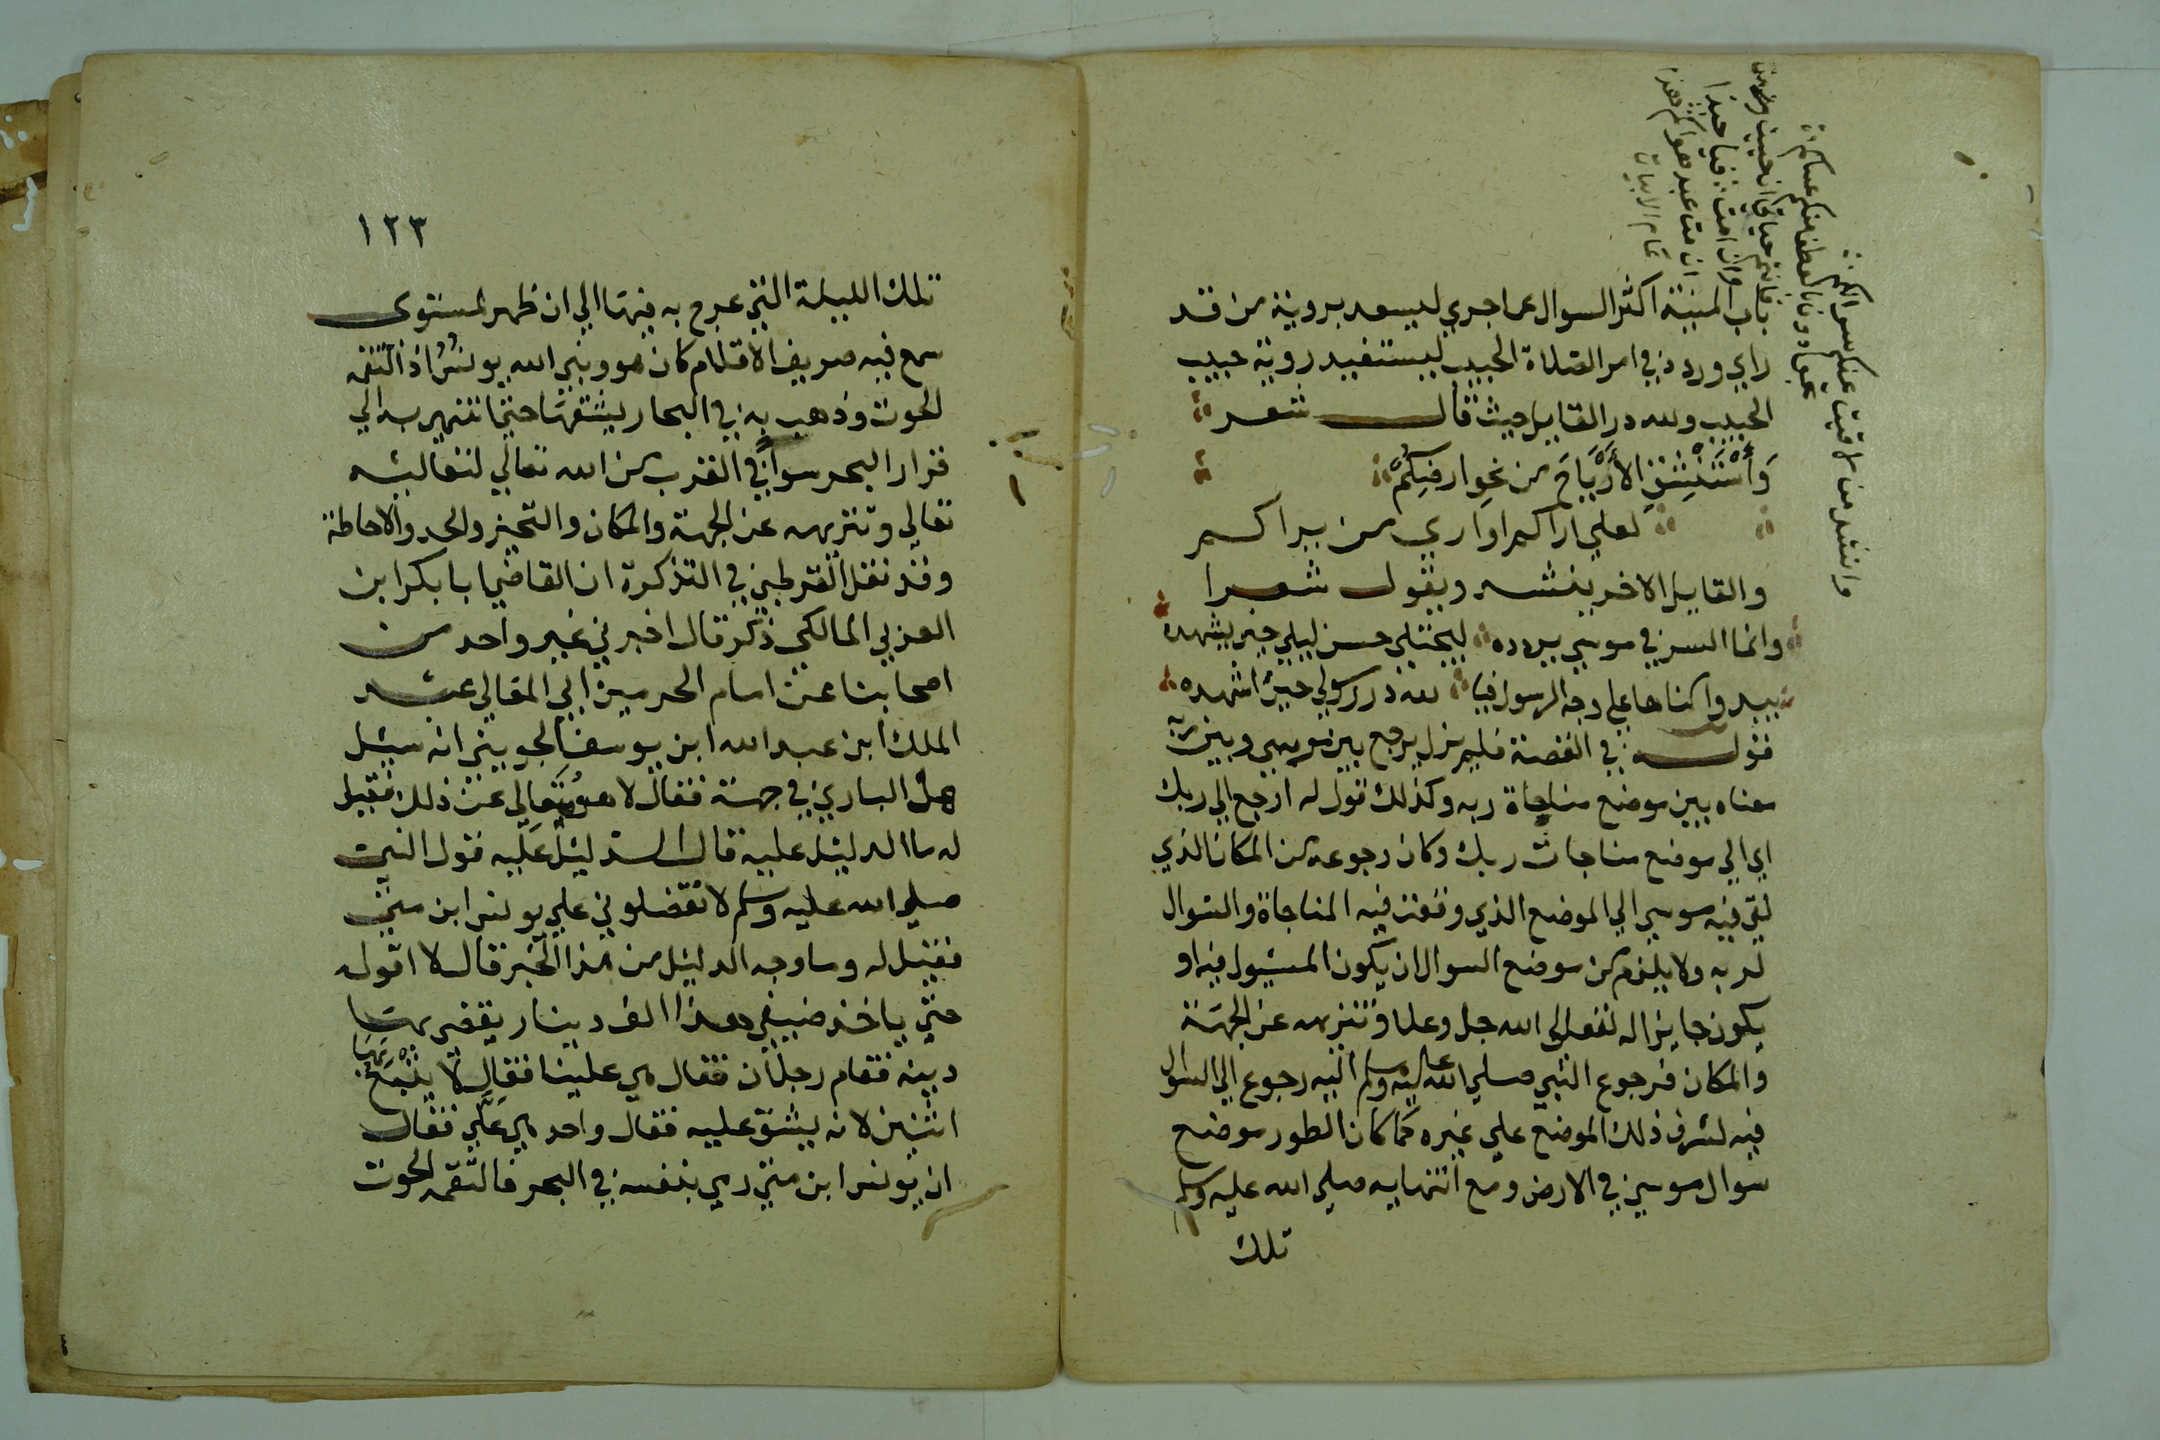 باب المنية اكثر السوال عما جري ليسعد بروية من قد
راي وردد في امر الصلاة الحبيب ليستفيد روية حبيب
الحبيب ولله در القايل حيث قال شعر
وَأَسْتَنْشِقُ الأَرْيَاحَ من نحو ارضكم
لعلي اراكم او اري من يراكم
والقايل الاخر ينشد ويقول شعرا
وانما السر في موسي يردده ليجتلي حسن ليلي حين يشهده
يبدوا سناها علي وجه الرسول فيا لله در رسول حين اشهده
قوله في القصة فلم يزل يرجع بين موسي وبين ربه
معناه بين موضع مناجاة ربه وكذلك قول له ارجع الي ربك
اي الي موضع مناجات ربك وكان رجوعه من المكان الذي
لقي فيه موسي الي الموضع الذي وقعت فيه المناجاة والسوال
لربه ولا يلزم من موضع السوال ان يكون المسيول فيه او
يكون جايزا له تعالي الله جل وعلا وتنزه عن الجهة
والمكان فرجوع النبي صلي الله عليه وسلم اليه رجوع الي السوال
فيه لشرف ذلك الموضع علي غيره كما كان الطور موضع
سوال موسي في الارض ومع انتهايه صلي الله عليه وسلم
تلك
وانشد من لاقيت عنكم سواكم
عبادونا بالعطف منكم عساكم
فانتم حياتي ان حييت
وان امت فيا حبذا
ان مت عبد هواكم هذا
تمام الابيات
١٢٣
تلك الليلة التي عرج به فيها الي ان ظهر لمستوي
سمع فيه صريف الاقلام كان هو ونبي الله يونس اذ التقمه
الحوت وذهب به في البحار يشقها حتي انتهي به الي
قرار البحر سوآ في القرب من الله تعالي لتعاليه
تعالي وتنزيهه عن الجهة والمكان والتحيز والحد والاحاطة
وقد نقل القرطبي في التذكرة ان القاضي ابا بكر ابن
العربي المالكي ذكر قال اخبرني غير واحد من
اصحابنا عن امام الحرمين ابي المعالي عبد
الملك ابن عبد الله ابن يوسف الجويني انه سيل
هل الباري في جهة فقال لا هو يتعالي عن ذلك فقيل
له ما الدليل عليه قال الدليل عليه قول النبي
صلي الله عليه وسلم لا تفضلوني علي يونس ابن متي
فقيل له وما وجه الدليل من هذا الخبر قال لا اقوله
حتي ياخذ ضيفي هذا الف دينار يقضي بها
دينه فقام رجلان فقال هي علينا فقال لا يتبع بها
اثنين لانه يشق عليه فقال واحد هي علي فقال
ان يونس ابن متي رمي بنفسه في البحر فالتقمه الحوت